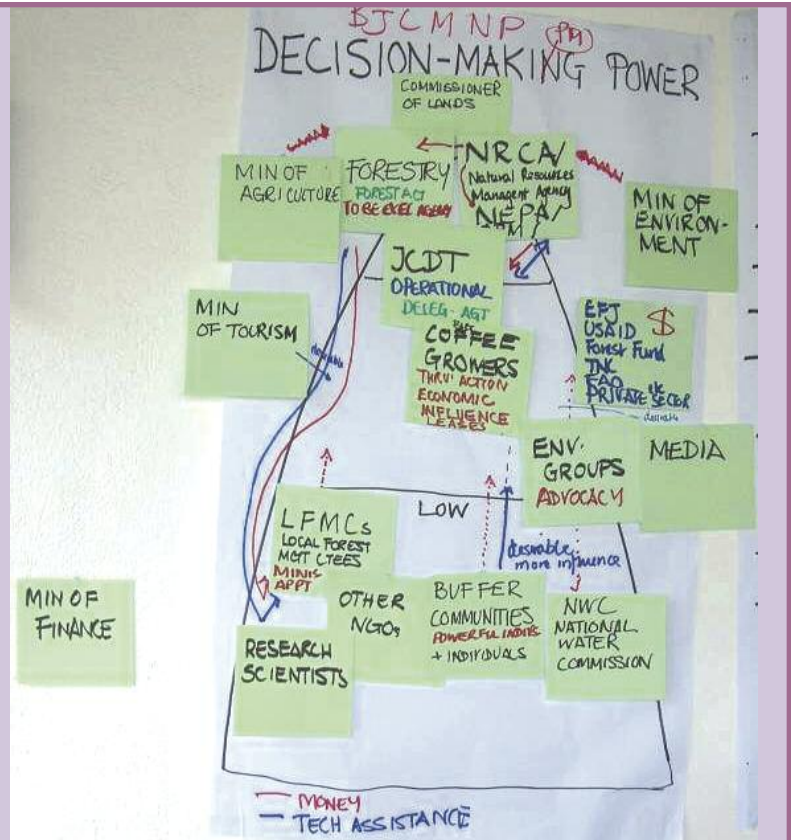 BJCMNP
DECISION-MAKING POWER
COMMISSIONER
OF LANDS
MIN OF
AGRICULTURE
FORESTRY
FOREST ACT
TO BE EXEC AGENCY
NRCA/
Natural Resources
Managent Agency
NEPA/
MIN OF
ENVIRON-
MENT
JCDT
OPERATIONAL
DELEG- AGT
MIN
OF TOURISM
desirable
COFFEE
GROWERS
THRU' ACTION
ECONOMIC
INFLUENCE
LEASES
EFJ $
USAID
Forest Fund
TNC
FAO
PRIVATE SECTOR
desirable
ENV.
GROUPS
ADVOCACY
MEDIA
LOW
LFMCs
LOCAL FOREST
MGT CTEES
MINIS
APPT
desirable
more influence
MIN OF
FINANCE
OTHER
NGOs
BUFFER
COMMUNITIES
POWERFUL INDIVS
+ INDIVIDUALS
NWC
NATIONAL
WATER
COMMISSION
RESEARCH
SCIENTISTS
MONEY
TECH ASSISTANCE